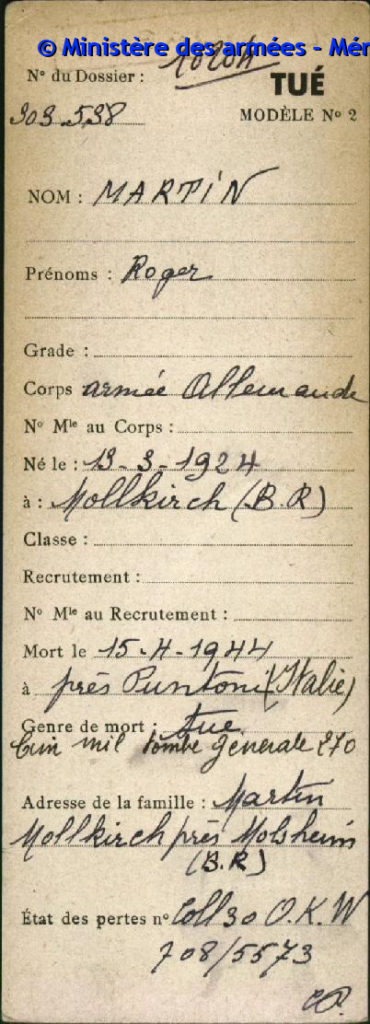 © Ministère des armées - Mém
N° du Dossier : 10204
TUÉ
303.538
MODÈLE N° 2
NOM : MARTIN
Prénoms : Roger
Grade :
Corps armée Allemande
N° Mle au Corps :
Né le : 13-3-1924
à : Mollkirch (B.R)
Classe :
Recrutement :
N° Mle au Recrutement :
Mort le 15-4-1944
à près Puntoni (Italie)
Genre de mort : tué
Cim mil tombe générale 270
Adresse de la famille : Martin
Mollkirch près Molsheim
(B.R)
État des pertes n° Coll 30 O.K.W
708/5573